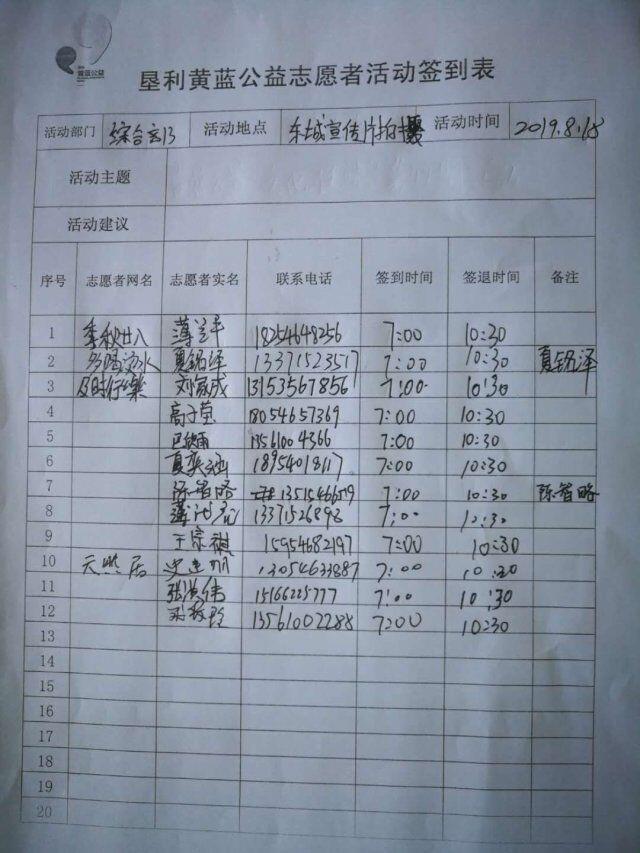 黄蓝公益
垦利黄蓝公益志愿者活动签到表
活动部门 综合 活动地点 东城宣传片拍摄 活动时间 2019.8.18
活动主题
活动建议
序号 志愿者网名 志愿者实名 联系电话 签到时间 签退时间 备注
1 季秋廿八 薄兰平 18254648256 7:00 10:30
2 多喝汤水 夏铭泽 13371523517 7:00 10:30 夏铭泽
3 及时行乐 刘 成 13153567856 7:00 10:30
4 高子莹 18054657369 7:00 10:30
5 13561004366 7:00 10:30
6 夏 18954018117 7:00 10:30
7 陈哲略 7:00 10:30 陈哲略
8 薄 13371526898 7:00 10:30
9 王宗祺 15954682197 7:00 10:30
10 天然居 13054633887 7:00 10:30
11 张洪伟 15166225777 7:00 10:30
12 13561002288 7:00 10:30
13
14
15
16
17
18
19
20